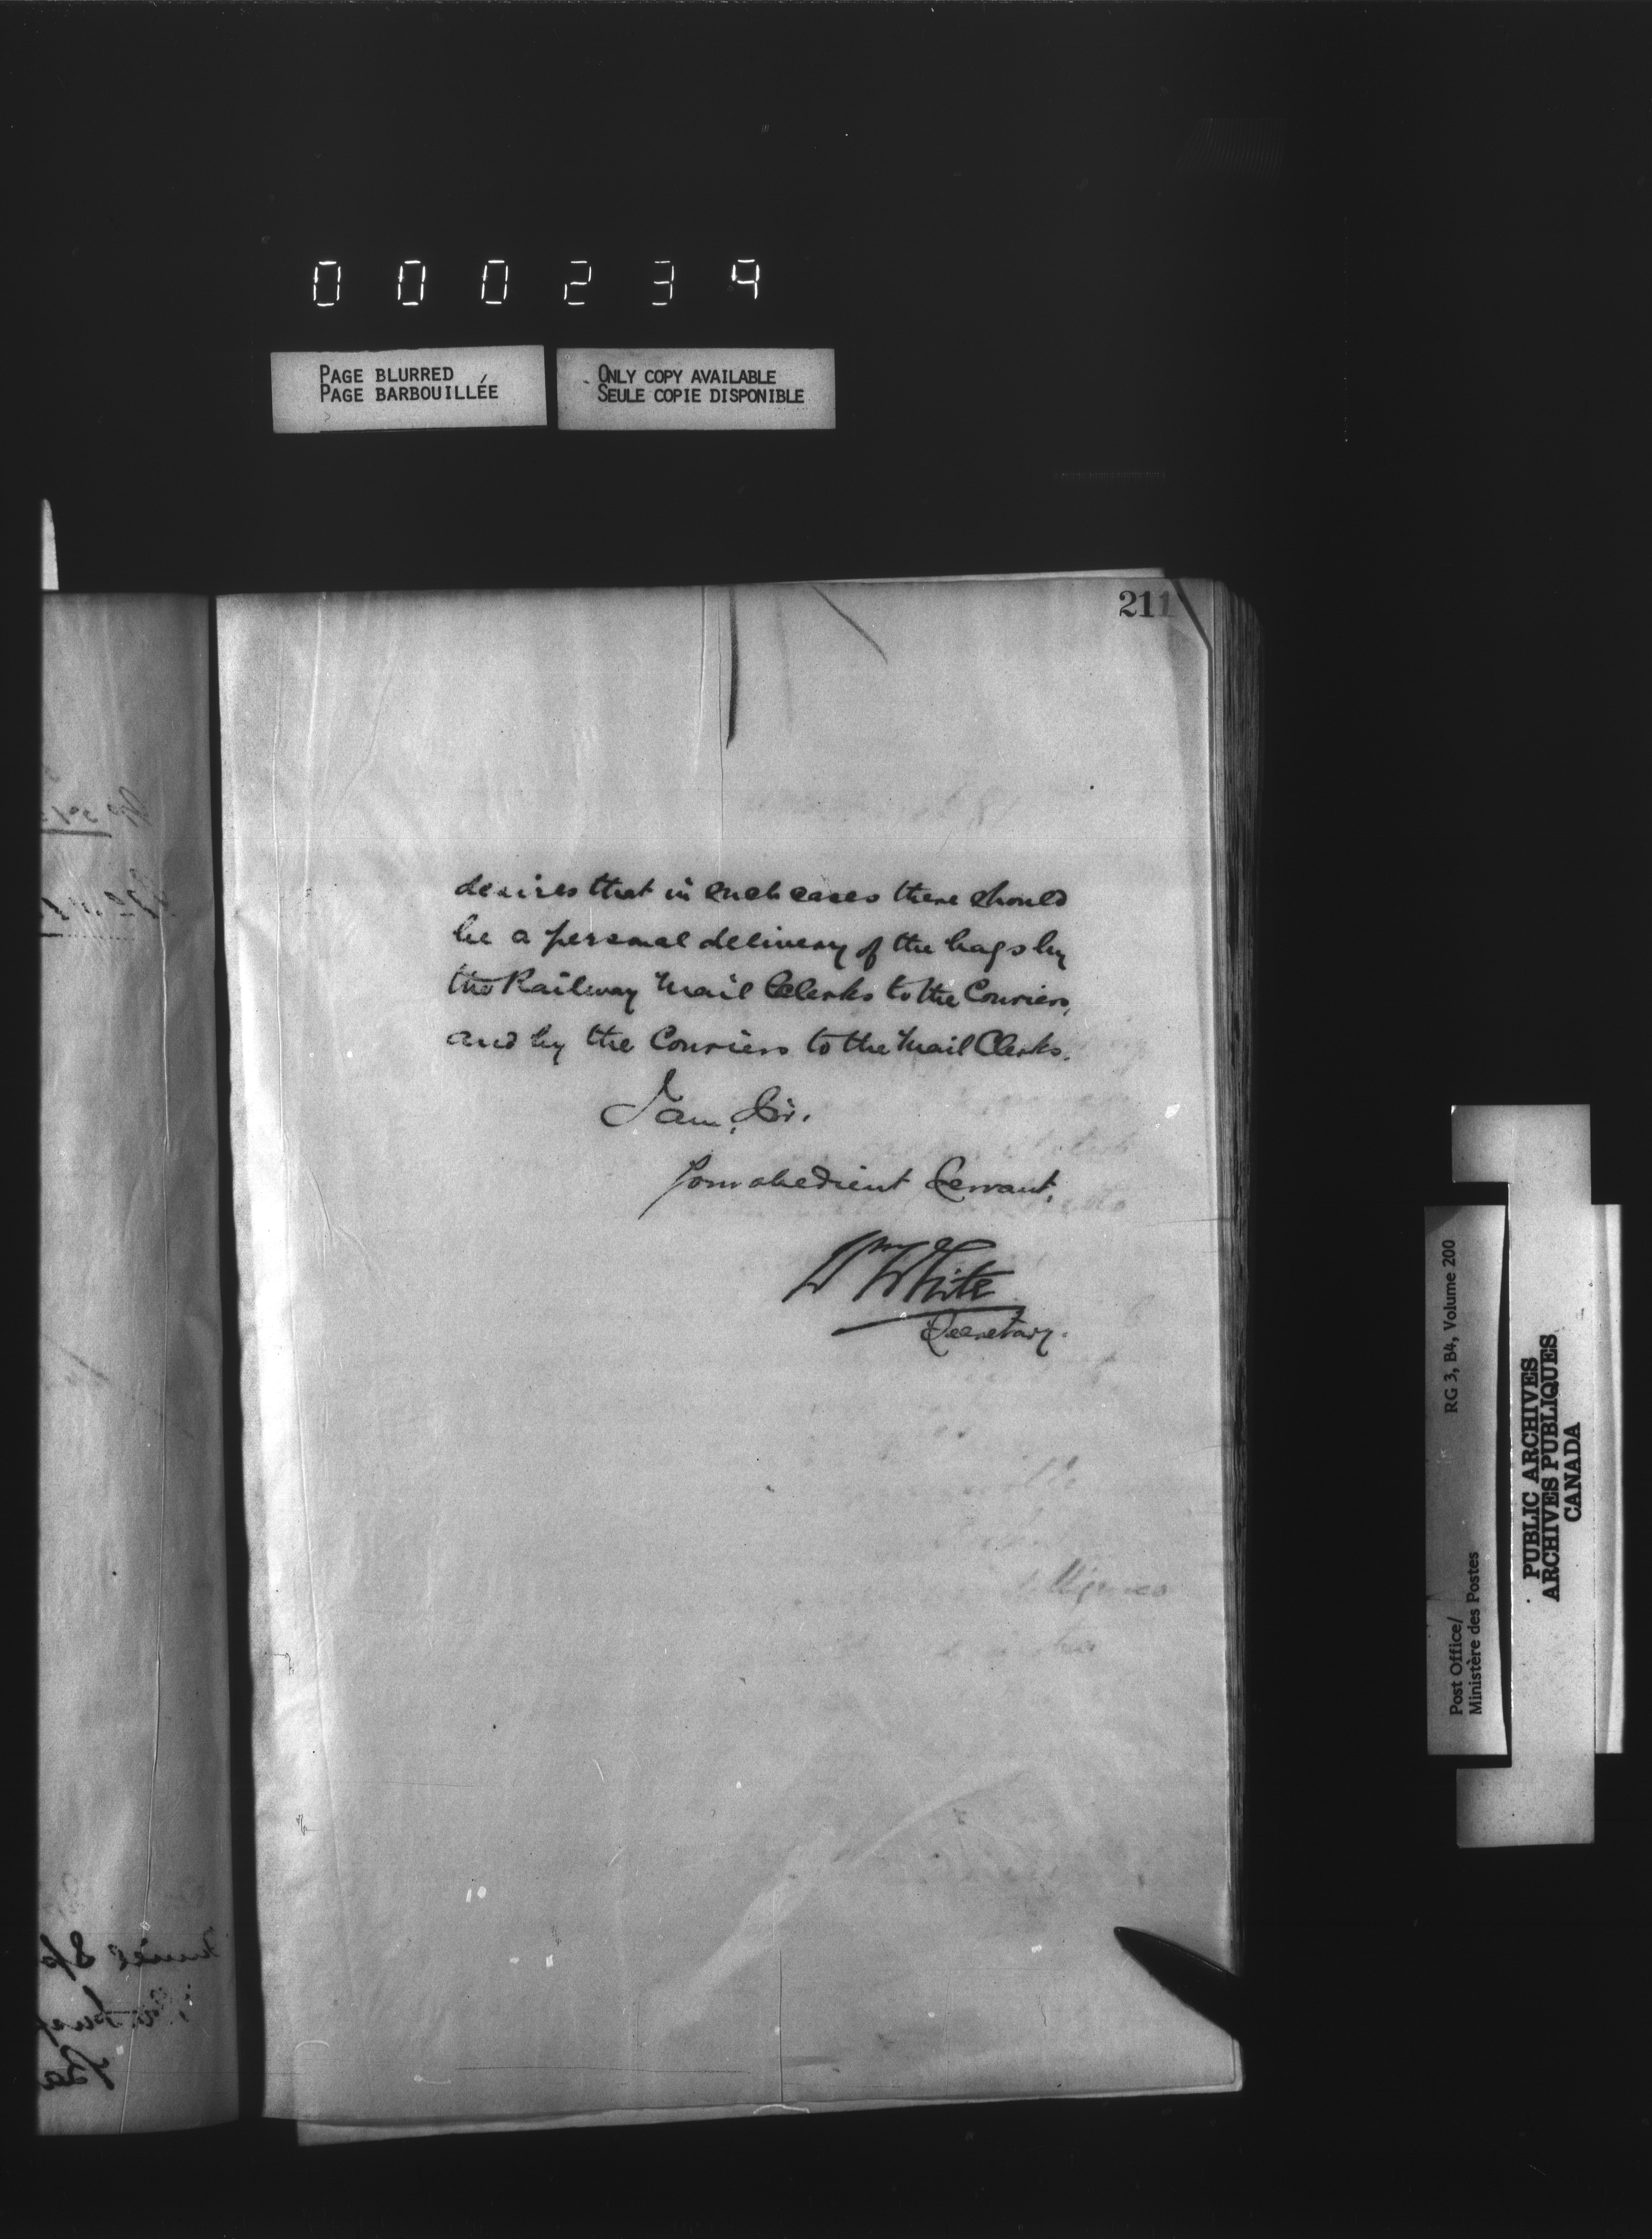 000234
PAGE BLURRED
PAGE BARBOUILLÉE
ONLY COPY AVAILABLE
SEULE COPIE DISPONIBLE
211
desires that in such cases there should
be a personal delivery of the bags by
the Railway Mail Clerks to the Couriers,
and by the Couriers to the Mail Clerks.
I am, Sir,
Your obedient Servant,
Wm White
Secretary.
Post Office/
Ministère des Postes
RG 3, B4, Volume 200
PUBLIC ARCHIVES
ARCHIVES PUBLIQUES
CANADA